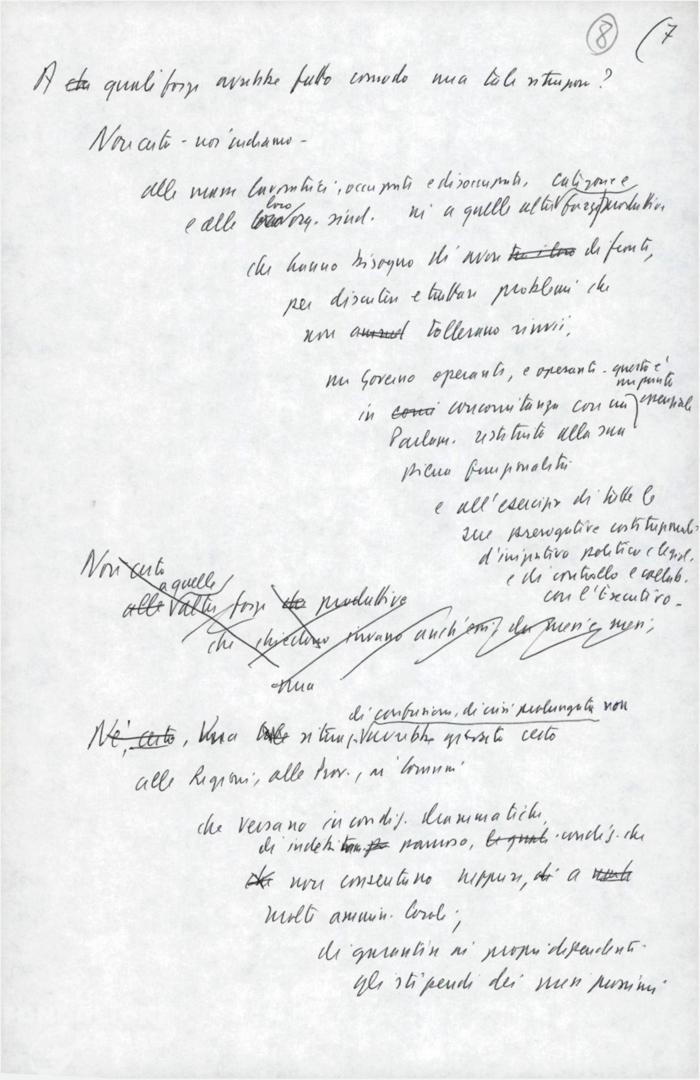 8 (7
A che quali forze avrebbe fatto comodo una tale situazione?
Non certo - noi crediamo -
alle masse lavoratrici, occupati e disoccupati,
e alle loro org. sind. né a quelle altre forze produttive
che hanno bisogno di avere di fronte,
per discutere e trattare problemi che
non tollerano rinvii,
un Governo operante, e operante - questo è
un punto
essenziale
in concomitanza con un
Parlam. restituito alla sua
piena funzionalità
e all'esercizio di tutte le
sue prerogative costituzionali
d'iniziativa politica e legisl.
e di controllo e collab.
con l'Esecutivo -
Non certo
a quelle
alle altre forze produttive
che chiedono invano anch'esse da mesi e mesi,
una
di confusione, di crisi prolungata non
Né, certo, Una tale situaz. avrebbe giovato certo
alle Regioni, alle Prov., ai Comuni
che versano in condiz. drammatiche,
di indebitam. pauroso, condiz. che
non consentono neppure, a
molte ammin. locali,
di garantire ai propri dipendenti
gli stipendi dei mesi prossimi